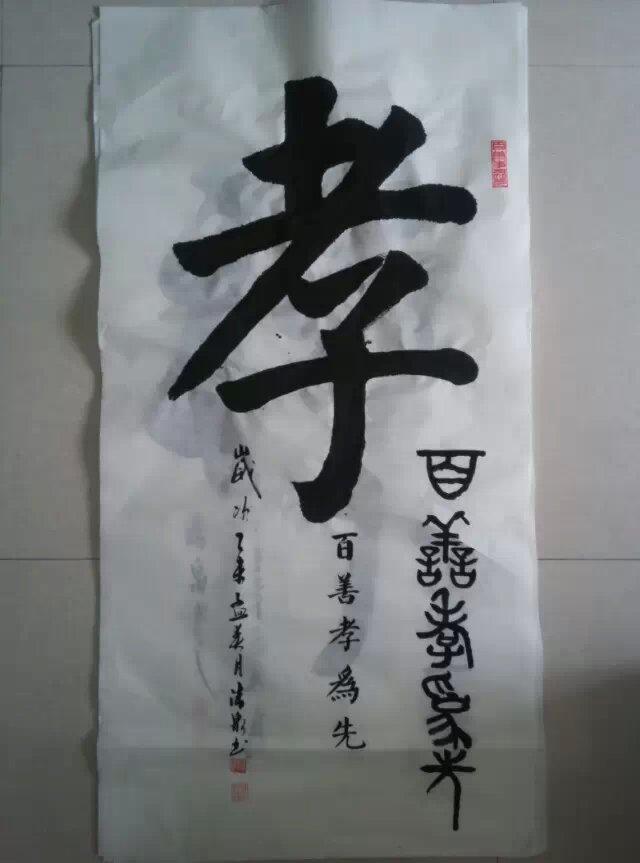 孝
百善孝爲先
百善孝爲先
歲次乙未孟英月
書